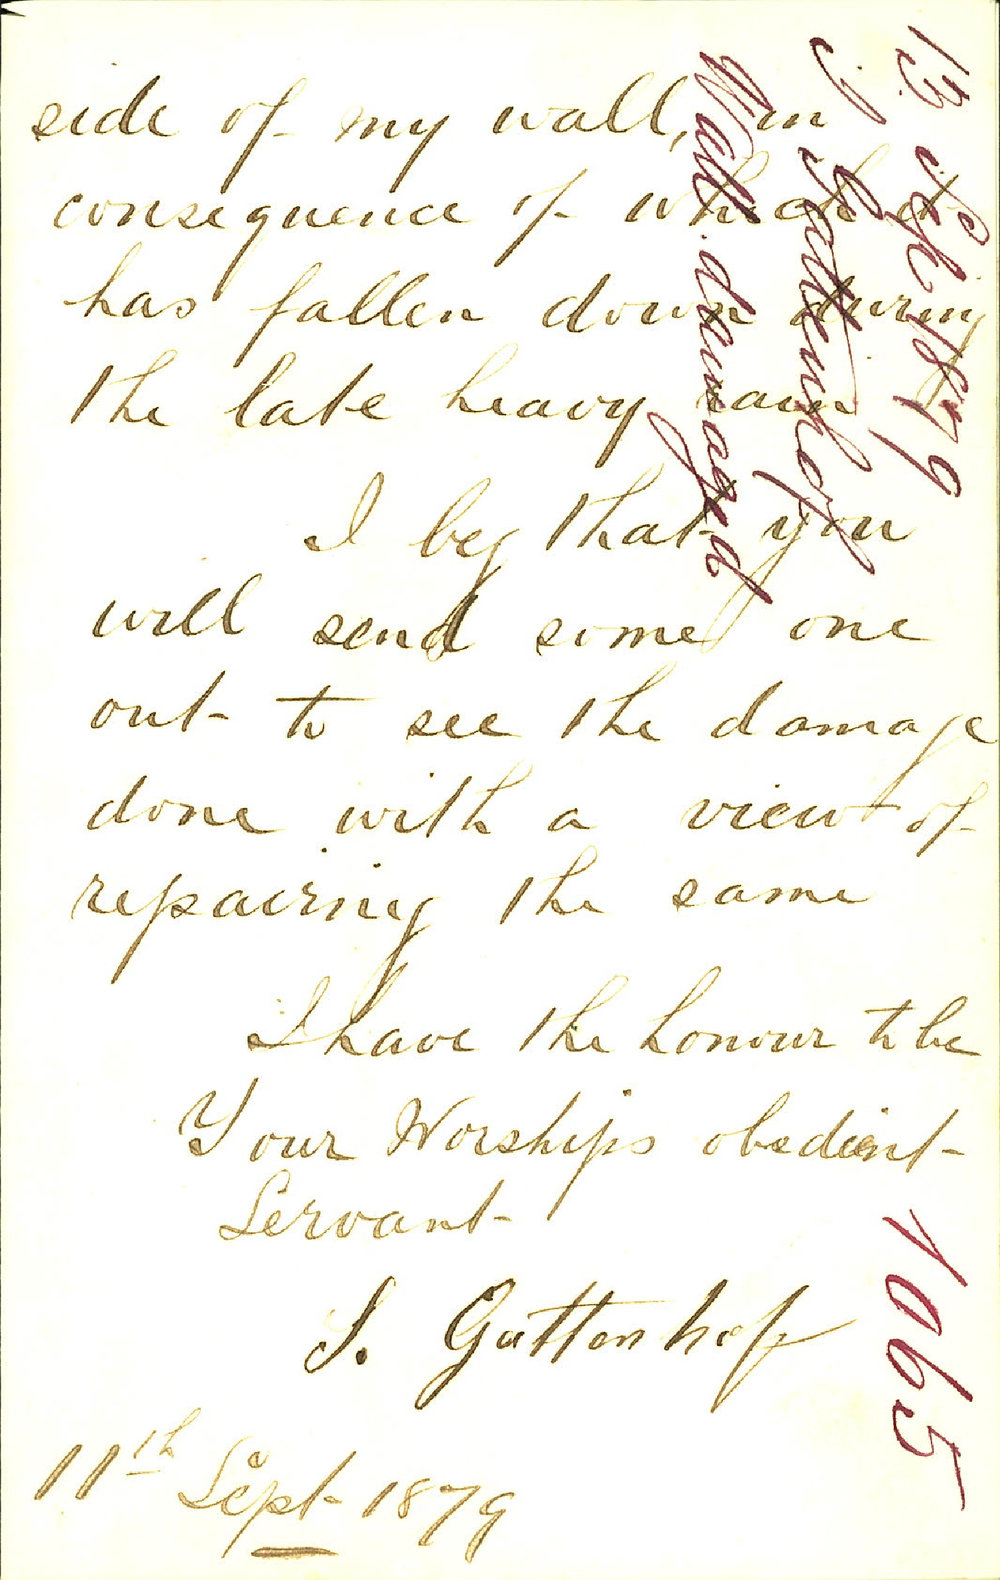 side of my wall, in
consequence of which it
has fallen down during
the late heavy rain
I beg that you
will send some one
out to see the damage
done with a view of
repairing the same
I have the honour to be
Your Worships obedient
Servant
S. Guttenhof
11th Sept 1879
13 Sept 1879
Wall damaged
1065